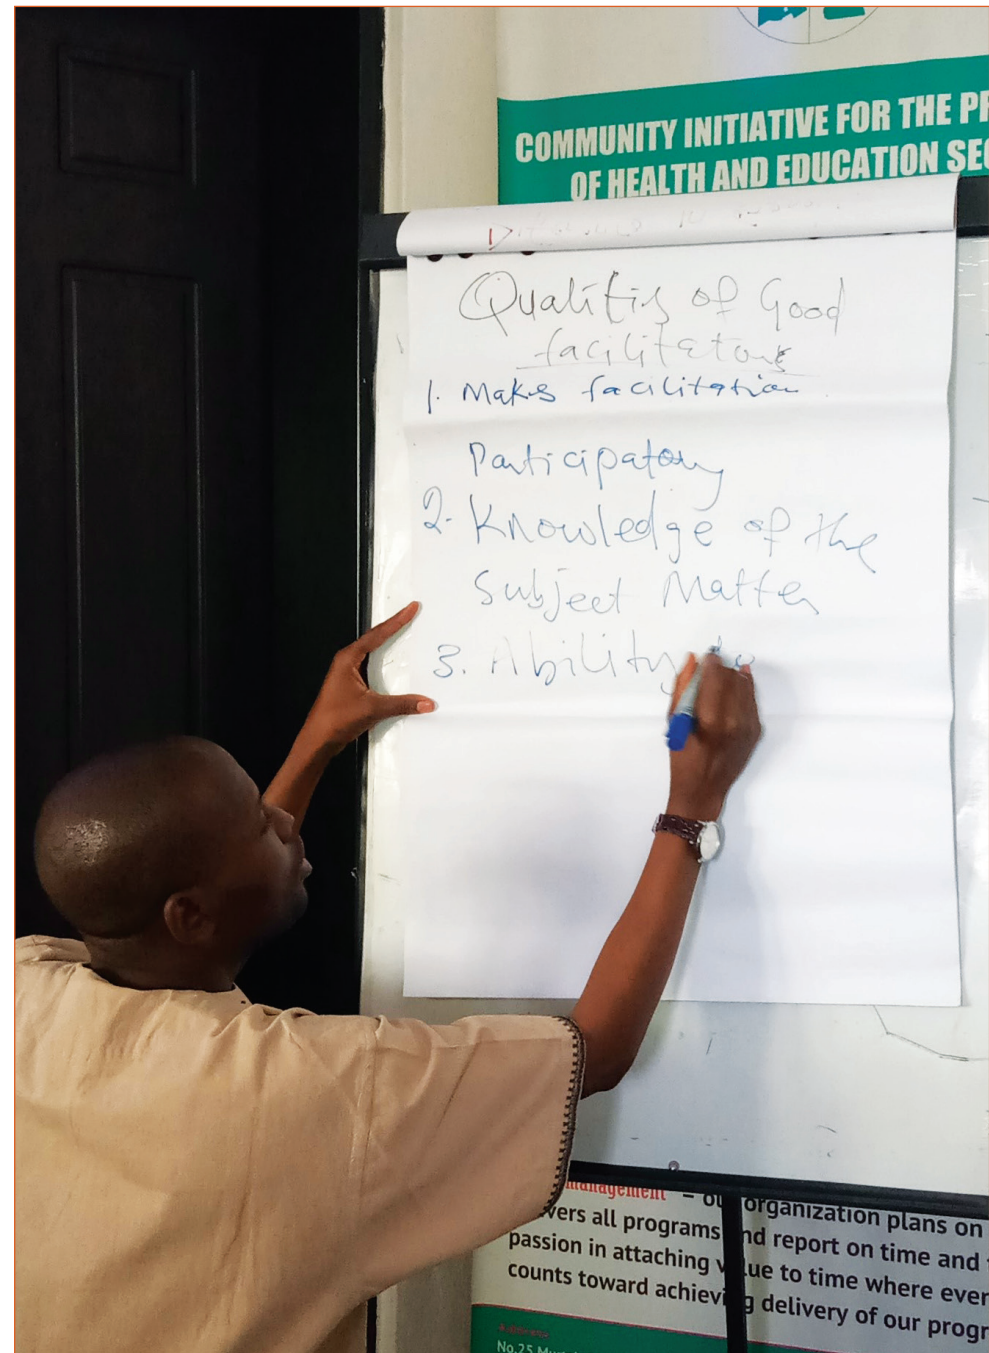 COMMUNITY INITIATIVE FOR THE PR
OF HEALTH AND EDUCATION SEC
Qualitis of Good
facilitators
1. Makes facilitation
Participatory
2. Knowledge of the
Subject Matter
3. Ability to
management – our organization plans on
vers all programs and report on time and
passion in attaching value to time where ever
counts toward achieving delivery of our progr
No.25